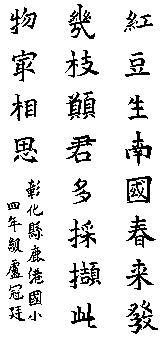 紅豆生南國春来發
幾枝顚君多採擷此
物冣相思
彰化縣鹿港國小
四年級盧冠廷